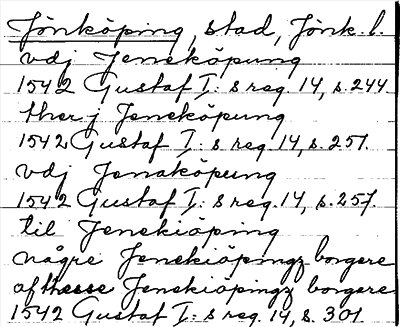 Jönköping, stad, Jönk. l.
vdj Jeneköpung
1542 Gustaf I: s reg. 14, s. 244.
ther j Jeneköpung
1542 Gustaf I: s reg. 14, s. 251.
vdj Jenaköpung
1542 Gustaf I: s reg. 14, s. 257.
til Jenekiöping
någre Jenekiöpingz borgere
af thesse Jenekiöpingz borgere
1542 Gustaf I: s reg. 14, s. 301